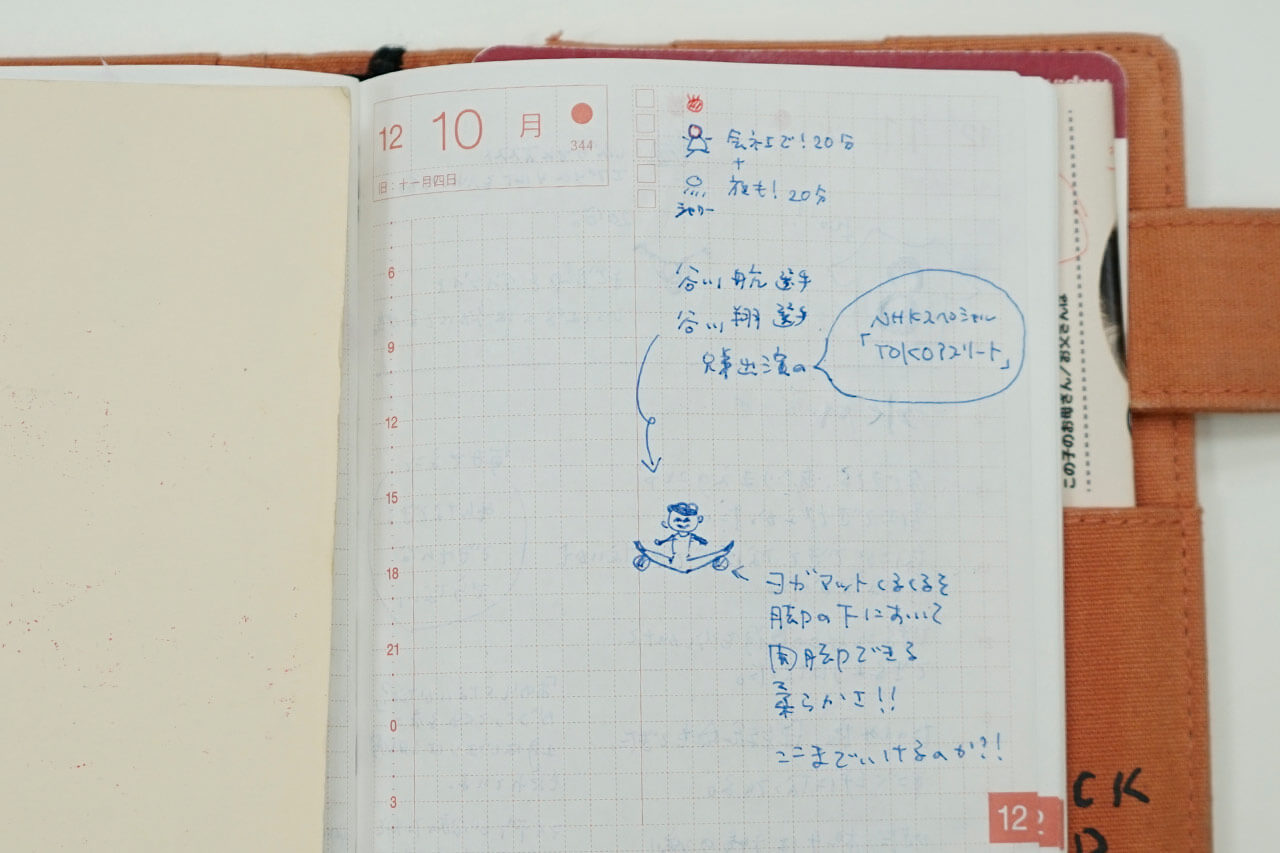 12 10 月
344
旧：十一月四日
会社で！20分
+
夜も！20分
シャワー
谷川航選手
谷川翔選手
兄弟出演の
NHKスペシャル
「TOKOアスリート」
6
9
12
15
18
21
0
3
ヨガマットくるくるを
脚の下において
開脚できる
柔らかさ!!
ここまでいけるのか?!
12
この子のお母さん/お父さんは
CK